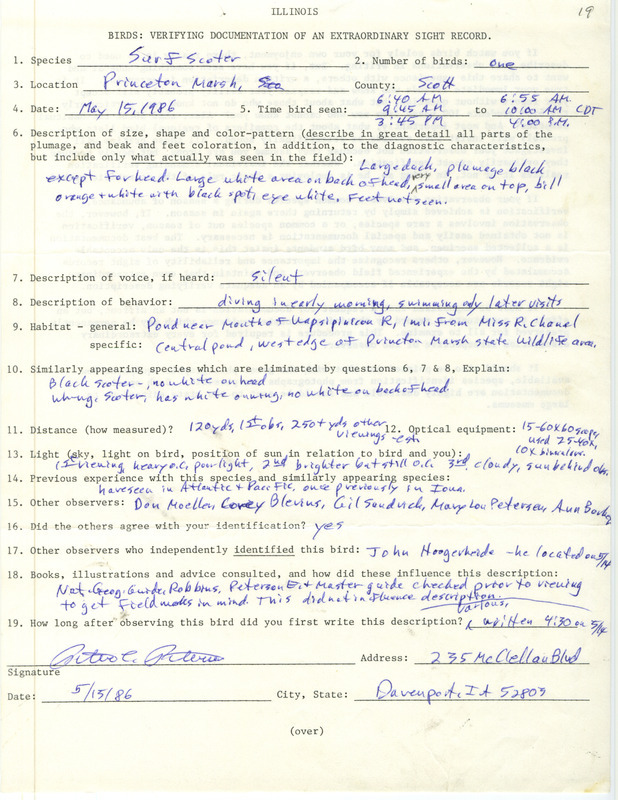 ILLINOIS
19
BIRDS: VERIFYING DOCUMENTATION OF AN EXTRAORDINARY SIGHT RECORD.
1. Species Surf Scoter 2. Number of birds: one
3. Location Princeton Marsh, County: Scott
6:40 AM 6:55 AM.
4. Date: May 15, 1986 5. Time bird seen: 9:45 AM to 10:00 AM CDT
3:45 PM 4:00 P.M.
6. Description of size, shape and color-pattern (describe in great detail all parts of the
plumage, and beak and feet coloration, in addition, to the diagnostic characteristics,
but include only what actually was seen in the field): Large duck, plumage black
except for head. Large white area on back of head, very small area on top, bill
orange + white with black spot, eye white. Feet not seen.
7. Description of voice, if heard: silent
8. Description of behavior: diving in early morning, swimming only later visits
9. Habitat - general: Pond near Mouth of Wapsipinicon R, 1 mi. from Miss R. Chanel
specific: Central pond, west edge of Princton Marsh state Wildlife area.
10. Similarly appearing species which are eliminated by questions 6, 7 & 8, Explain:
Black Scoter -, no white on head
Wh-wng. Scoter, has white on wing, no white on back of head
11. Distance (how measured)? 120 yds, 1st obs, 250+ yds other viewings - est. 12. Optical equipment: 15-60x60 scope, used 25-40x, 10x binoculars.
13. Light (sky, light on bird, position of sun in relation to bird and you):
1st viewing heavy o.c. poor light, 2nd brighter but still o.c. 3rd cloudy, sun behind obs.
14. Previous experience with this species and similarly appearing species:
have seen in Atlantic + Pacific, once previously in Iowa.
15. Other observers: Don Moeller, Corey Blevins, Gil Sandvich, Mary Lou Petersen, Ann
16. Did the others agree with your identification? yes
17. Other observers who independently identified this bird: John Hoogerheide - he located on 5/14
18. Books, illustrations and advice consulted, and how did these influence this description:
Nat. Geog. Guide, Robbins, Peterson E. + Master guide checked prior to viewing
to get field marks in mind. This did not influence description.
19. How long after observing this bird did you first write this description? various, written 4:30 on 5/14
Signature Address: 235 McClellan Blvd
Date: 5/15/86 City, State: Davenport, IA 52803
(over)